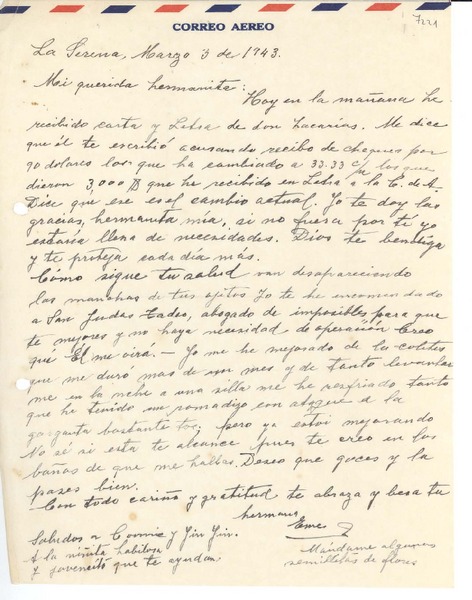 CORREO AEREO
7221
La Serena, Marzo 3 de 1943.
Mi querida hermanita:
Hoy en la mañana he
recibido carta y Letra de don Zacarías. Me dice
que él te escribió acusando recibo de cheques por
90 dolares los que ha cambiado a 33.33 c/u los que
dieron 3,000 $ que he recibido en Letra a la C. de A.
Dice que ese es el cambio actual. Yo te doy las
gracias, hermanita mía, si no fuera por tí yo
estaría llena de necesidades. Dios te bendiga
y te proteja cada día más.
Cómo sigue tu salud van desapareciendo
las manchas de tus ojitos Yo te he encomendado
a San Judas Tadeo, abogado de imposibles para que
te mejores y no haya necesidad de operación Creo
que El me oirá. — Yo me he mejorado de la colitis
que me duró mas de un mes y de tanto levantar
me en la noche a una silla me he resfriado tanto
que he tenido un romadizo con ataque a la
garganta bastante tos; pero ya estoi mejorando
No sé si esta te alcance pues te creo en los
baños de que me hablas. Deseo que goces y lo
pases bien.
Con todo cariño y gratitud te abraza y besa tu
hermana
Eme
Saludos a Connie y Yin Yin.
A la niñita habilosa
y jovencito que te ayudan.
Mándame algunas
semillitas de flores